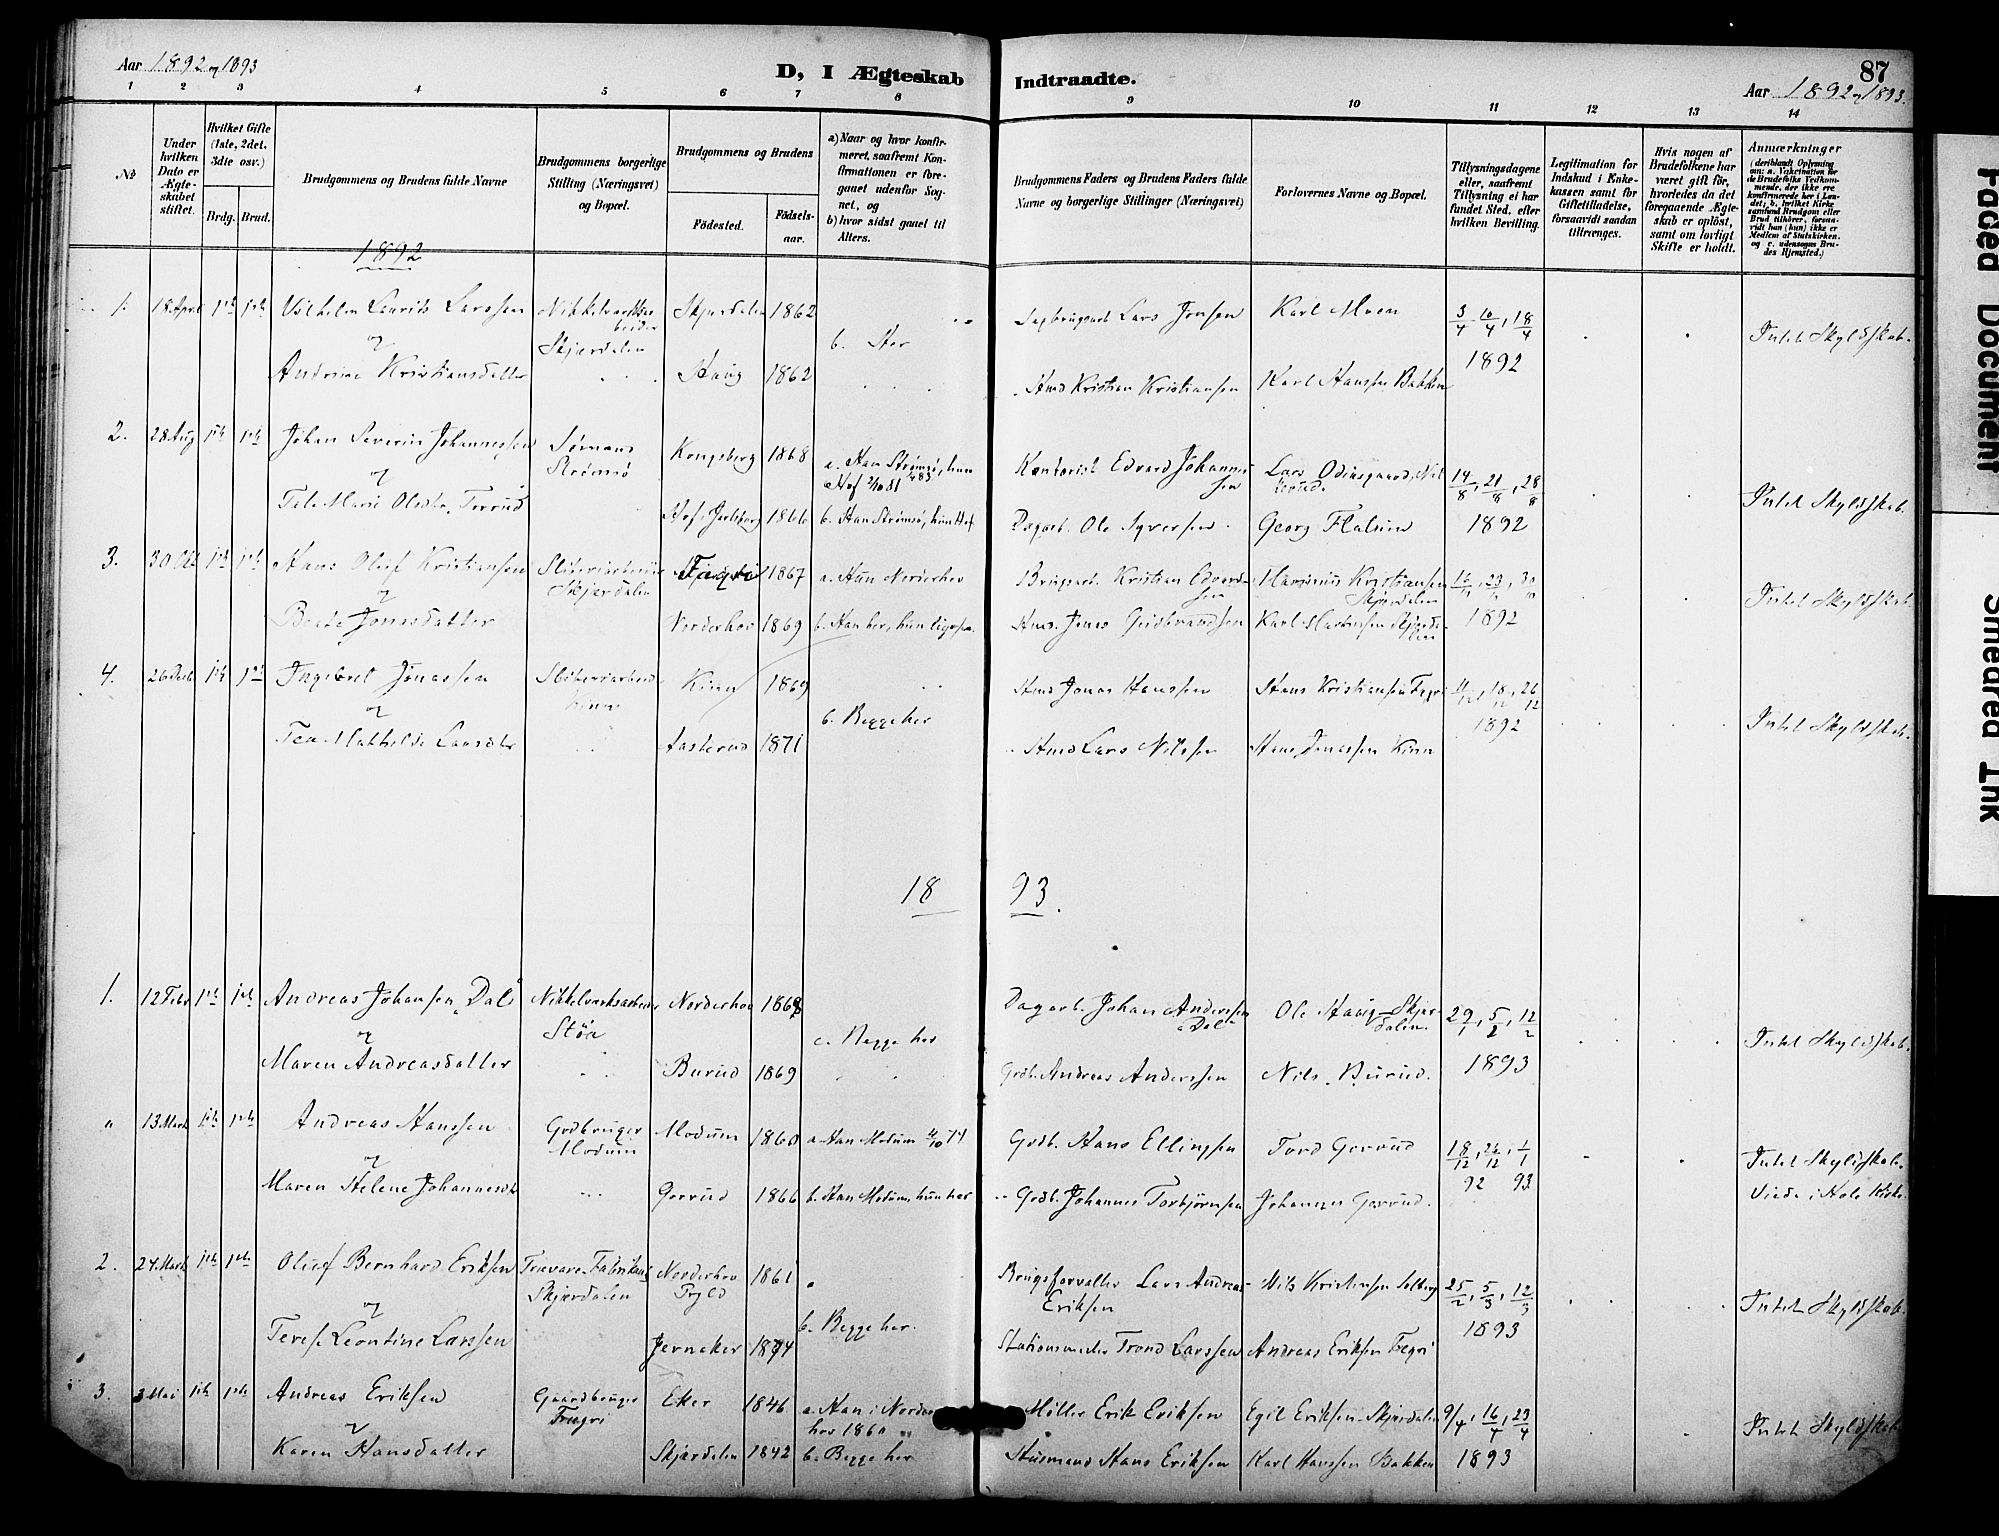 Aar 1892 og 1893
D, I Ægteskab Indtraadte.
87
Aar 1892 og 1893.
1 2 3 4 5 6 7 8 9 10 11 12 13 14
№
Under hvilken Dato er Ægteskabet stiftet.
Hvilket Gifte (1ste, 2det, 3die osv.)
Brdg. Brud.
Brudgommens og Brudens fulde Navne
Brudgommens borgerlige Stilling (Næringsvei) og Bopæl.
Brudgommens og Brudens
Fødested. Fødselsaar.
a) Naar og hvor konfirmeret, saafremt Konfirmationen er foregaaet udenfor Sognet, og
b) hvor sidst gaaet til Alters.
Brudgommens Faders og Brudens Faders fulde Navne og borgerlige Stillinger (Næringsvei)
Forlovernes Navne og Bopæl.
Tillysningsdagene eller, saafremt Tillysning ei har fundet Sted, efter hvilken Bevilling.
Legitimation for Indskud i Enkekassen samt for Giftetilladelse, forsaavidt saadan tiltrænges.
Hvis nogen af Brudefolkene har været gift før, hvorledes da det foregaaende Ægteskab er opløst, samt om lovligt Skifte er holdt.
Anmærkninger (deriblandt Oplysning om: a. Vakcination for de Brudefolks Vedkommende, der ikke ere konfirmerede her i Landet; b. hvilket Kirkesamfund Brudgom eller Brud tilhører, forsaavidt han (hun) ikke er Medlem af Statskirken. og c. udensogns Brudes Hjemsted.)
1892
1. 18 April 1ste 1ste Vilhelm Laurits Larssen Nikkelverksarbeider Skjærdalen Skjærdalen 1862 Sagbrugsarb. Lars Jonsen Karl Moen 3/4, 10/4, 18/4
og b. Her 1892 Intet Skyldskab.
Andrine Kristiansdatter Haug 1862 Hmd Kristian Kristiansen Karl Hanssen Bakken
2. 28 Aug 1ste 1ste Johan Severin Johannessen Sømand Strømsø Kongsberg 1868 a. Han Strømsø, hun Hof 2/10 81 Kontorist Edvard Johannessen Lars 14/8, 21/8, 28/8
og 1892 Intet Skyldskab.
Marie Olsdtr. Hof, Jarlsberg 1866 b. Han Strømsø, hun Hof Dagarb. Ole Syversen Georg
3. 30 Okt 1ste 1ste Hans Oluf Kristiansen Sliberiarbeider Skjærdalen 1867 a. Han Norderhov Brugsarb. Kristian Edvardsen Kristiansen Skjærdalen 16/10, 23/10, 30/10
og Intet Skyldskab.
Beate Jonsdatter Norderhov 1869 b. Han her, hun ligesaa. Hmd. Jonas Karl Skjærdalen 1892
4. 26 Decb 1ste 1ste Ingebret Jonassen Sliberiarbeid. Kinn Kinn 1869 Hmd Jonas Hanssen Hans Kristiansen Fegri 11/12, 18/12, 26/12
og b. Begge her 1892 Intet Skyldskab.
Tea Mathilde Larsdtr Aasterud 1871 Hmd Lars Nilsen Hans Jonassen Kinn
18 93.
1. 12 Febr 1ste 1ste Andreas Johansen Dal Nikkelverksarbeider Støa Norderhov 1868 Dagarb. Johan Anderssen Dal Ole Haug Skjærdalen. 29/1, 5/2, 12/2
og Begge her Intet Skyldskab.
Maren Andreasdatter Burud 1869 Grdb. Andreas Anderssen Nils Burud. 1893
" 13 Marts 1ste 1ste Andreas Hanssen Grdbruger Modum Modum 1860 a. Han Modum Grdb. Hans Ellingsen Tord Gorrud 18/12, 26/12, 1/1
og 92 93 Intet Skyldskab.
Maren Helene Johannesdtr Gorrud 1866 b. Han Modum, hun her Grdb. Johannes Torbjørnsen Johannes Gorrud. Viede i Hole Kirke.
2. 24 Marts 1ste 1ste Oluf Bernhard Eriksen Trævare-Fabrikant Skjærdalen Norderhov 1861 Brugsforvalter Lars Andreas Eriksen Nils Kristensen Solberg 25/2, 5/3, 12/3
og b. Begge her. 1893 Intet Skyldskab.
Terese Leontine Larssen Jernaker 1874 Stationsmester Trond Larssen Andreas Eriksen Fegri
3. 3 Mai 1ste 1ste Andreas Eriksen Gaardbruger Eker 1846 a. Han i Norderhov 1860 Møller Erik Eriksen Egil Eriksen Skjærdalen 9/4, 16/4, 23/4
og Intet Skyldskab
Karen Hansdatter Skjærdalen 1842 b. Begge her Husmand Hans Eriksen Karl Hanssen Bakken 1893
Faded Document
Smeared Ink